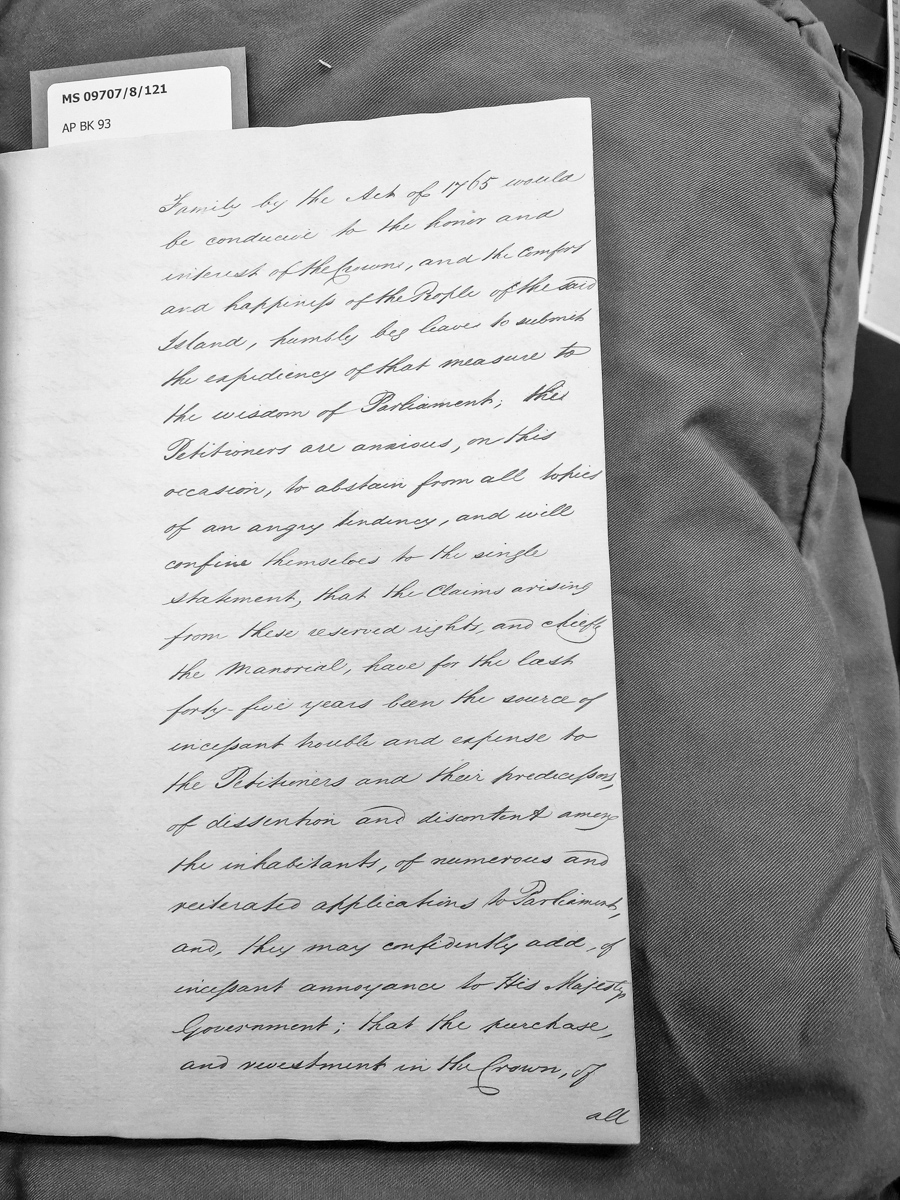 MS 09707/8/121
AP BK 93
Family by the Act of 1765 would
be conducive to the honor and
interest of the Crown, and the Comfort
and happiness of the People of the said
Island, humbly beg leave to submit
the expediency of that measure to
the wisdom of Parliament; the
Petitioners are anxious, on this
occasion, to abstain from all topics
of an angry tendency, and will
confine themselves to the single
statement, that the Claims arising
from these reserved rights, and chiefly
the Manorial, have for the last
forty-five years been the source of
incessant trouble and expense to
the Petitioners and their predecessors,
of dissention and discontent among
the inhabitants, of numerous and
reiterated applications to Parliament,
and, they may confidently add, of
incessant annoyance to His Majestys
Government; that the purchase,
and revestment in the Crown, of
all